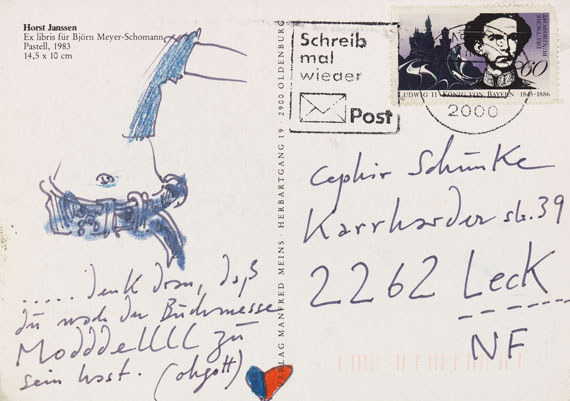 Horst Janssen
Ex libris für Björn Meyer-Schomann
Pastell, 1983
14,5 x 10 cm
..... denk dran, daß
du nach der Buchmesse
Modddellll zu
sein hast. (ohgott)
VERLAG MANFRED MEINS · HERBARTGANG 19 · 2900 OLDENBURG
Schreib
mal
wieder
Post
2000
DEUTSCHE
BUNDESPOST
60
LUDWIG II · KÖNIG VON BAYERN · 1845-1886
Schünke
Karrharder str. 39
2262 Leck
NF